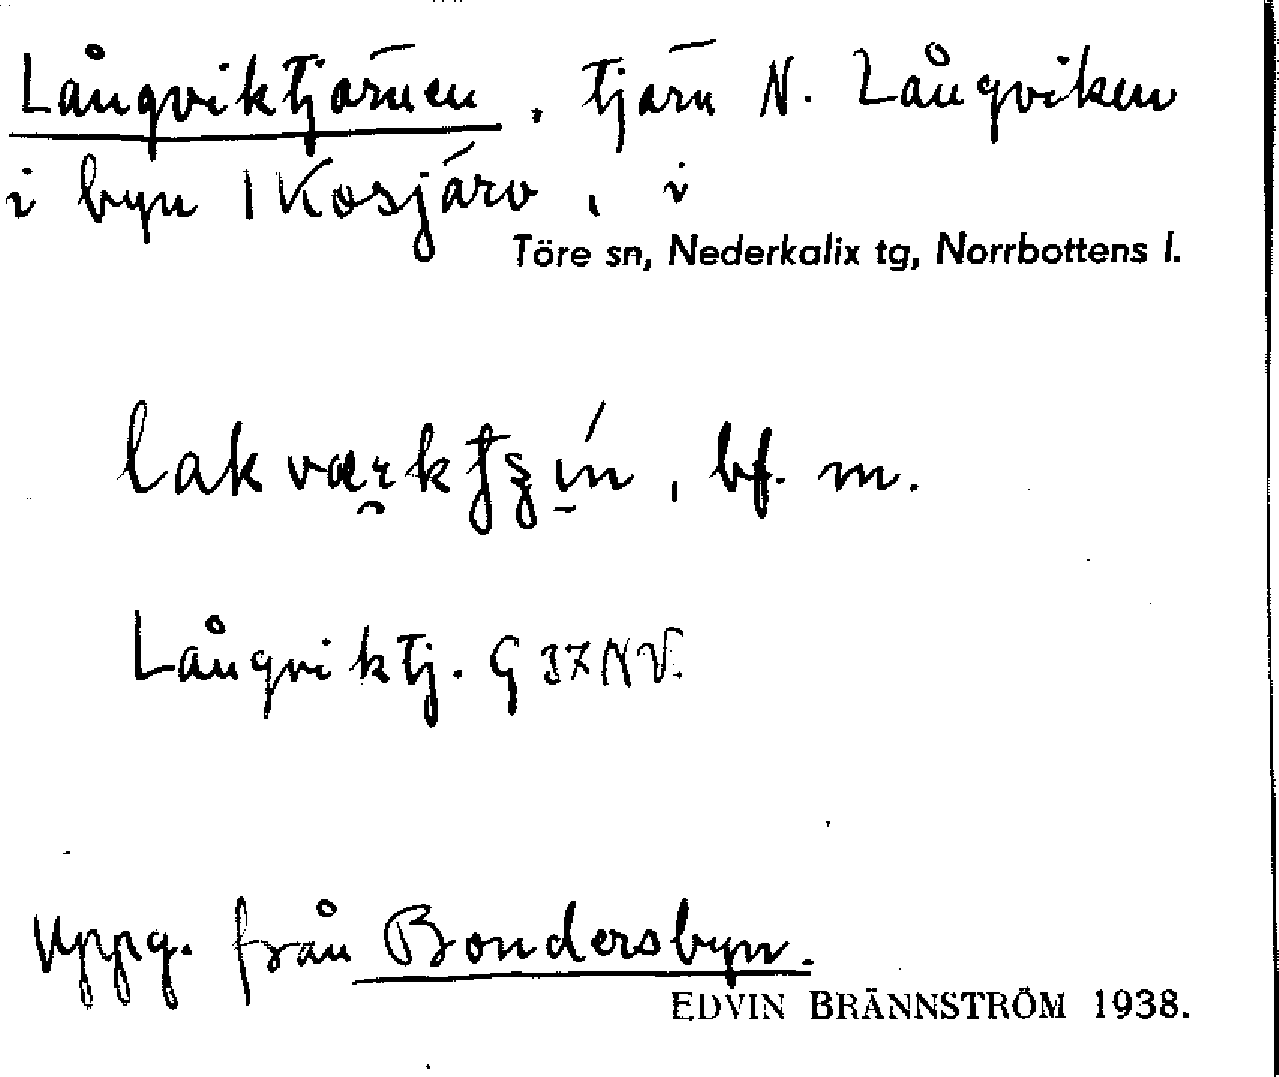 Långviktjärnen, tjärn N. Långviken
i byn Kosjärv, i
Töre sn, Nederkalix tg, Norrbottens l.
bf. m.
Långviktj. G 37 NV.
Uppg. från Bondersbyn.
EDVIN BRÄNNSTRÖM 1938.